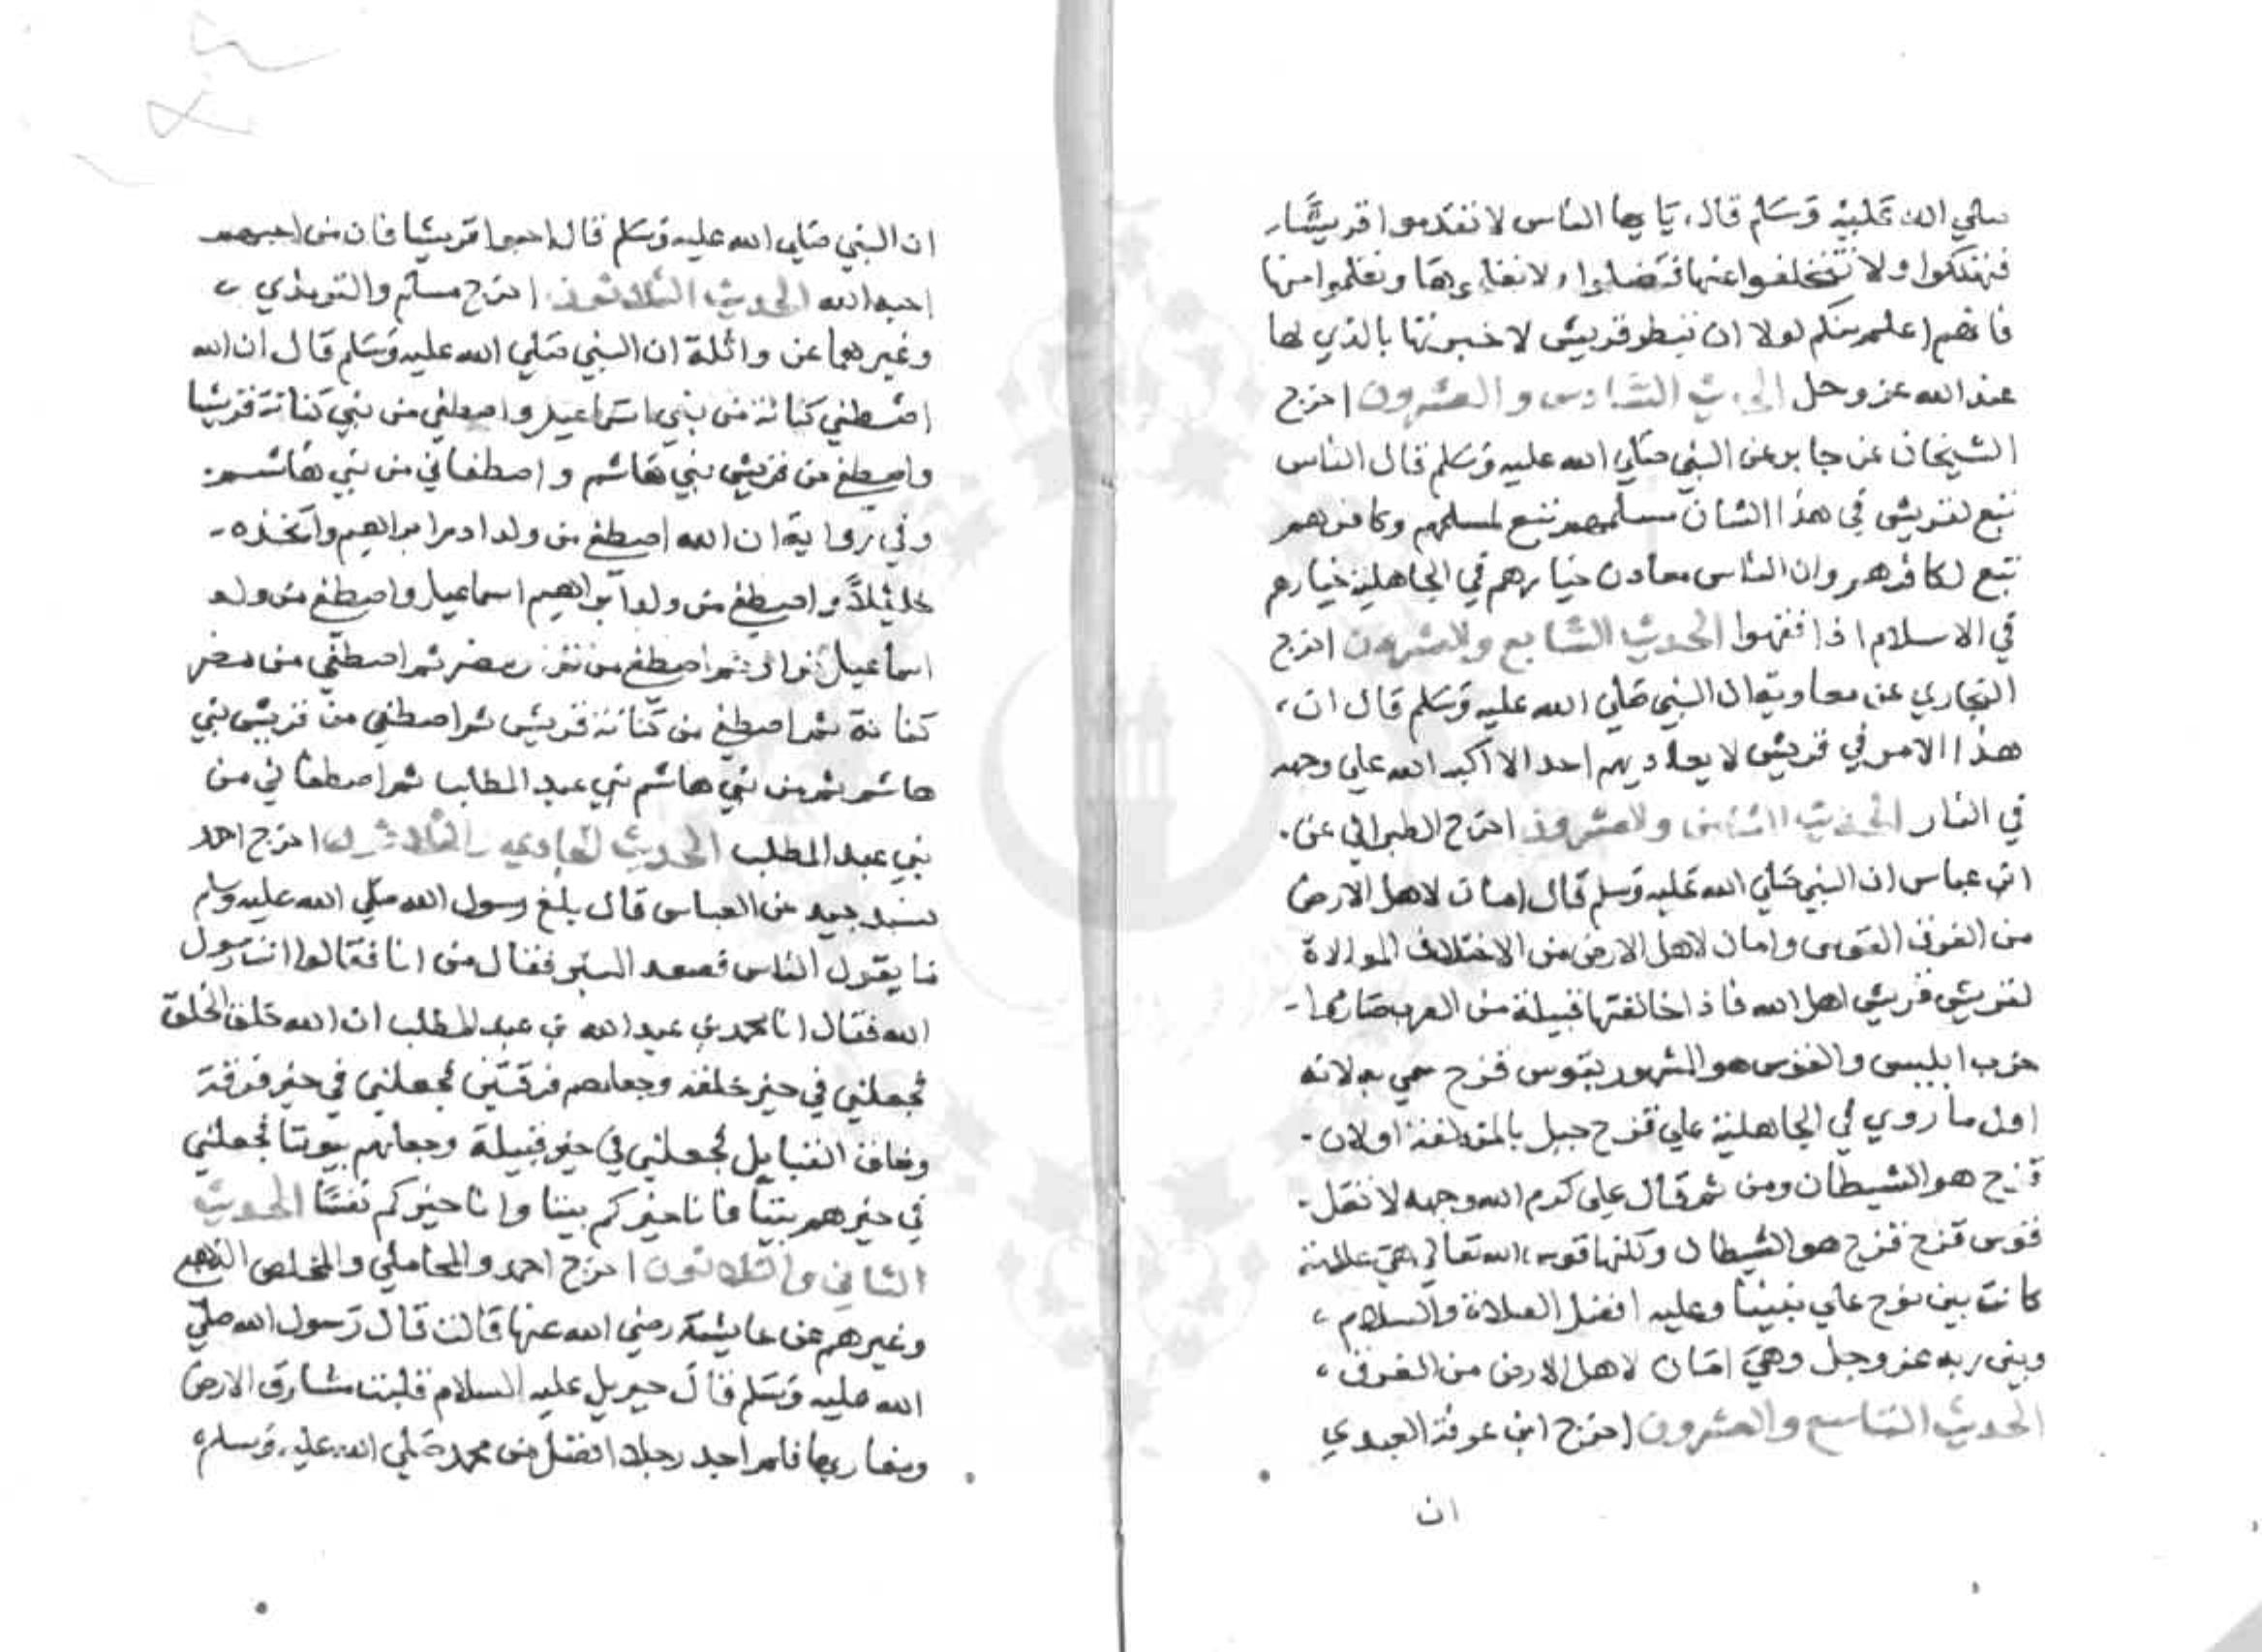 صلي الله عليه وسلم قال يايها الناس لا تقدموا قريشا
فتهلكوا ولا تتخلفوا عنها فتضلوا ولا تعلموها وتعلموا منها
فانهم اعلم منكم لولا ان تبطر قريش لاخبرتها بالذي لها
عند الله عز وجل الحديث السادس والعشرون اخرج
الشيخان عن جابر عن النبي صلي الله عليه وسلم قال الناس
تبع لقريش في هذا الشان مسلمهم تبع لمسلمهم وكافرهم
تبع لكافرهم وان الناس معادن خيارهم في الجاهلية خيارهم
في الاسلام اذا فقهوا الحديث السابع والعشرون اخرج
البخاري عن معاوية ان النبي صلي الله عليه وسلم قال ان
هذا الامر في قريش لا يعاديهم احد الا اكبه الله علي وجهه
في النار الحديث الثامن والعشرون اخرج الطبراني عن
ابن عباس ان النبي صلي الله عليه وسلم قال امان لاهل الارض
من الغرق القوس وامان لاهل الارض من الاختلاف الموالاة
لقريش قريش اهل الله فاذا خالفتها قبيلة من العرب صاروا
حزب ابليس والقوس هو المشهور بقوس قزح سمي به لانه
اول ما روي في الجاهلية علي قزح جبل بالمزدلفة اولان
قزح هو الشيطان ومن ثم قال علي كرم الله وجهه لا تقل
قوس قزح قزح هو الشيطان ولكنها قوس الله تعالي هي علامة
كانت بين نوح علي نبينا وعليه افضل الصلاة والسلام
وبين ربه عز وجل وهي امان لاهل الارض من الغرق
الحديث التاسع والعشرون اخرج ابن عرفة العبدي
ان
ان النبي صلي الله عليه وسلم قال احبوا قريشا فان من احبهم
احبه الله الحديث الثلاثون اخرج مسلم والترمذي
وغيرهما عن واثلة ان النبي صلي الله عليه وسلم قال ان الله
اصطفي كنانة من بني اسماعيل واصطفي من بني كنانة قريشا
واصطفي من قريش بني هاشم واصطفاني من بني هاشم
وفي رواية ان الله اصطفي من ولد ادم ابراهيم واتخذه
خليلا واصطفي من ولد ابراهيم اسماعيل واصطفي من ولد
اسماعيل نزار ثم اصطفي من نزار مضر ثم اصطفي من مضر
كنانة ثم اصطفي من كنانة قريش ثم اصطفي من قريش بني
هاشم ثم من بني هاشم بني عبد المطلب ثم اصطفاني من
بني عبد المطلب الحديث الحادي والثلاثون اخرج احمد
بسند جيد عن العباس قال بلغ رسول الله صلي الله عليه وسلم
ما يقول الناس فصعد المنبر فقال من انا فقالوا انت رسول
الله فقال انا محمد بن عبد الله بن عبد المطلب ان الله خلق الخلق
فجعلني في خير خلقه وجعلهم فرقتين فجعلني في خير فرقة
وخلق القبايل فجعلني في خير قبيلة وجعلهم بيوتا فجعلني
في خيرهم بيتا فانا خيركم بيتا وانا خيركم نفسا الحديث
الثاني والثلاثون اخرج احمد والمحاملي والمخلص الذهبي
وغيرهم عن عايشة رضي الله عنها قالت قال رسول الله صلي
الله عليه وسلم قال جبريل عليه السلام قلبت مشارق الارض
ومغاربها فلم اجد رجلا افضل من محمد صلي الله عليه وسلم